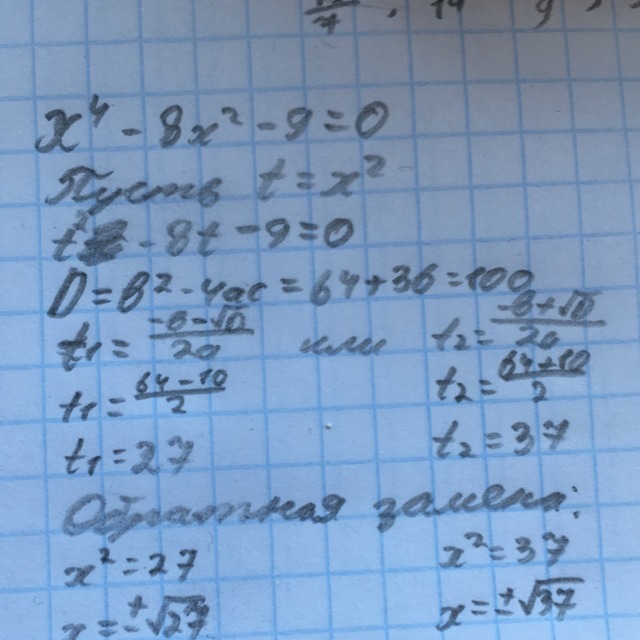 x⁴ - 8x² - 9 = 0
Пусть t = x²
t² - 8t - 9 = 0
D = b² - 4ac = 64 + 36 = 100
t₁ = (-b - √D)/2a или t₂ = (-b + √D)/2a
t₁ = (64 - 10)/2 t₂ = (64 + 10)/2
t₁ = 27 t₂ = 37
Обратная замена:
x² = 27 x² = 37
x = ±√27 x = ±√37